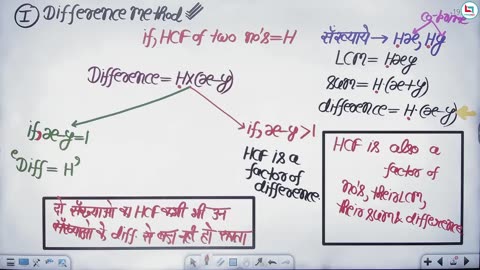 I Difference method
if, HCF of two no's = H
co-prime
संख्याये → Hx, Hy
LCM = Hxy
sum = H(x+y)
difference = H·(x-y)
Difference = H×(x-y)
if, x-y=1
"Diff = H"
if, x-y>1
HCF is a
factor of
difference
HCF is also a
factor of
no's, their LCM,
their sum & difference
दो संख्याओ का HCF कभी भी उन
संख्याओ के diff. से बड़ा नही हो सकता